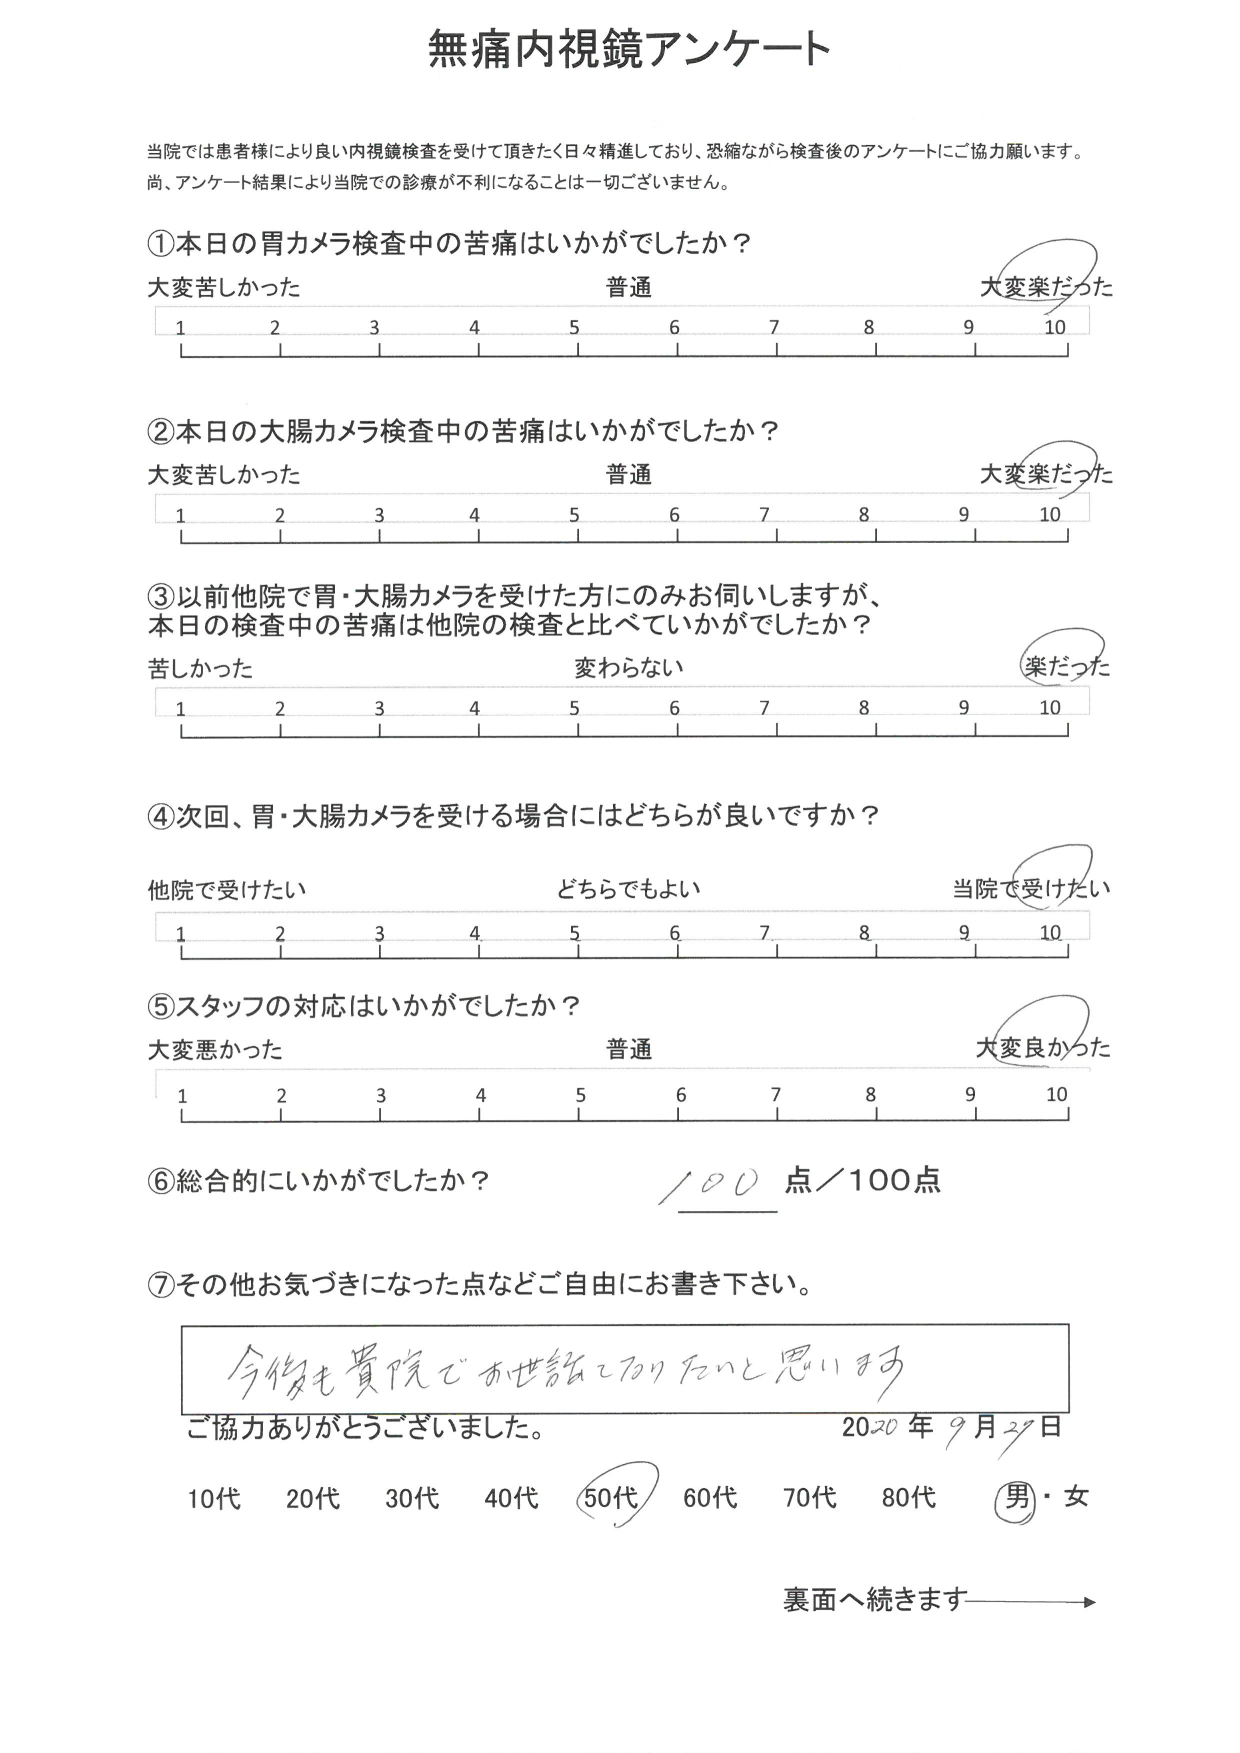 無痛内視鏡アンケート
当院では患者様により良い内視鏡検査を受けて頂きたく日々精進しており、恐縮ながら検査後のアンケートにご協力願います。
尚、アンケート結果により当院での診療が不利になることは一切ございません。
①本日の胃カメラ検査中の苦痛はいかがでしたか？
大変苦しかった 普通 大変楽だった
1 2 3 4 5 6 7 8 9 10
②本日の大腸カメラ検査中の苦痛はいかがでしたか？
大変苦しかった 普通 大変楽だった
1 2 3 4 5 6 7 8 9 10
③以前他院で胃・大腸カメラを受けた方にのみお伺いしますが、
本日の検査中の苦痛は他院の検査と比べていかがでしたか？
苦しかった 変わらない 楽だった
1 2 3 4 5 6 7 8 9 10
④次回、胃・大腸カメラを受ける場合にはどちらが良いですか？
他院で受けたい どちらでもよい 当院で受けたい
1 2 3 4 5 6 7 8 9 10
⑤スタッフの対応はいかがでしたか？
大変悪かった 普通 大変良かった
1 2 3 4 5 6 7 8 9 10
⑥総合的にいかがでしたか？ 100 点／100点
⑦その他お気づきになった点などご自由にお書き下さい。
今後も貴院でお世話になりたいと思います
ご協力ありがとうございました。 2020 年 9 月 29 日
10代 20代 30代 40代 50代 60代 70代 80代 男・女
裏面へ続きます